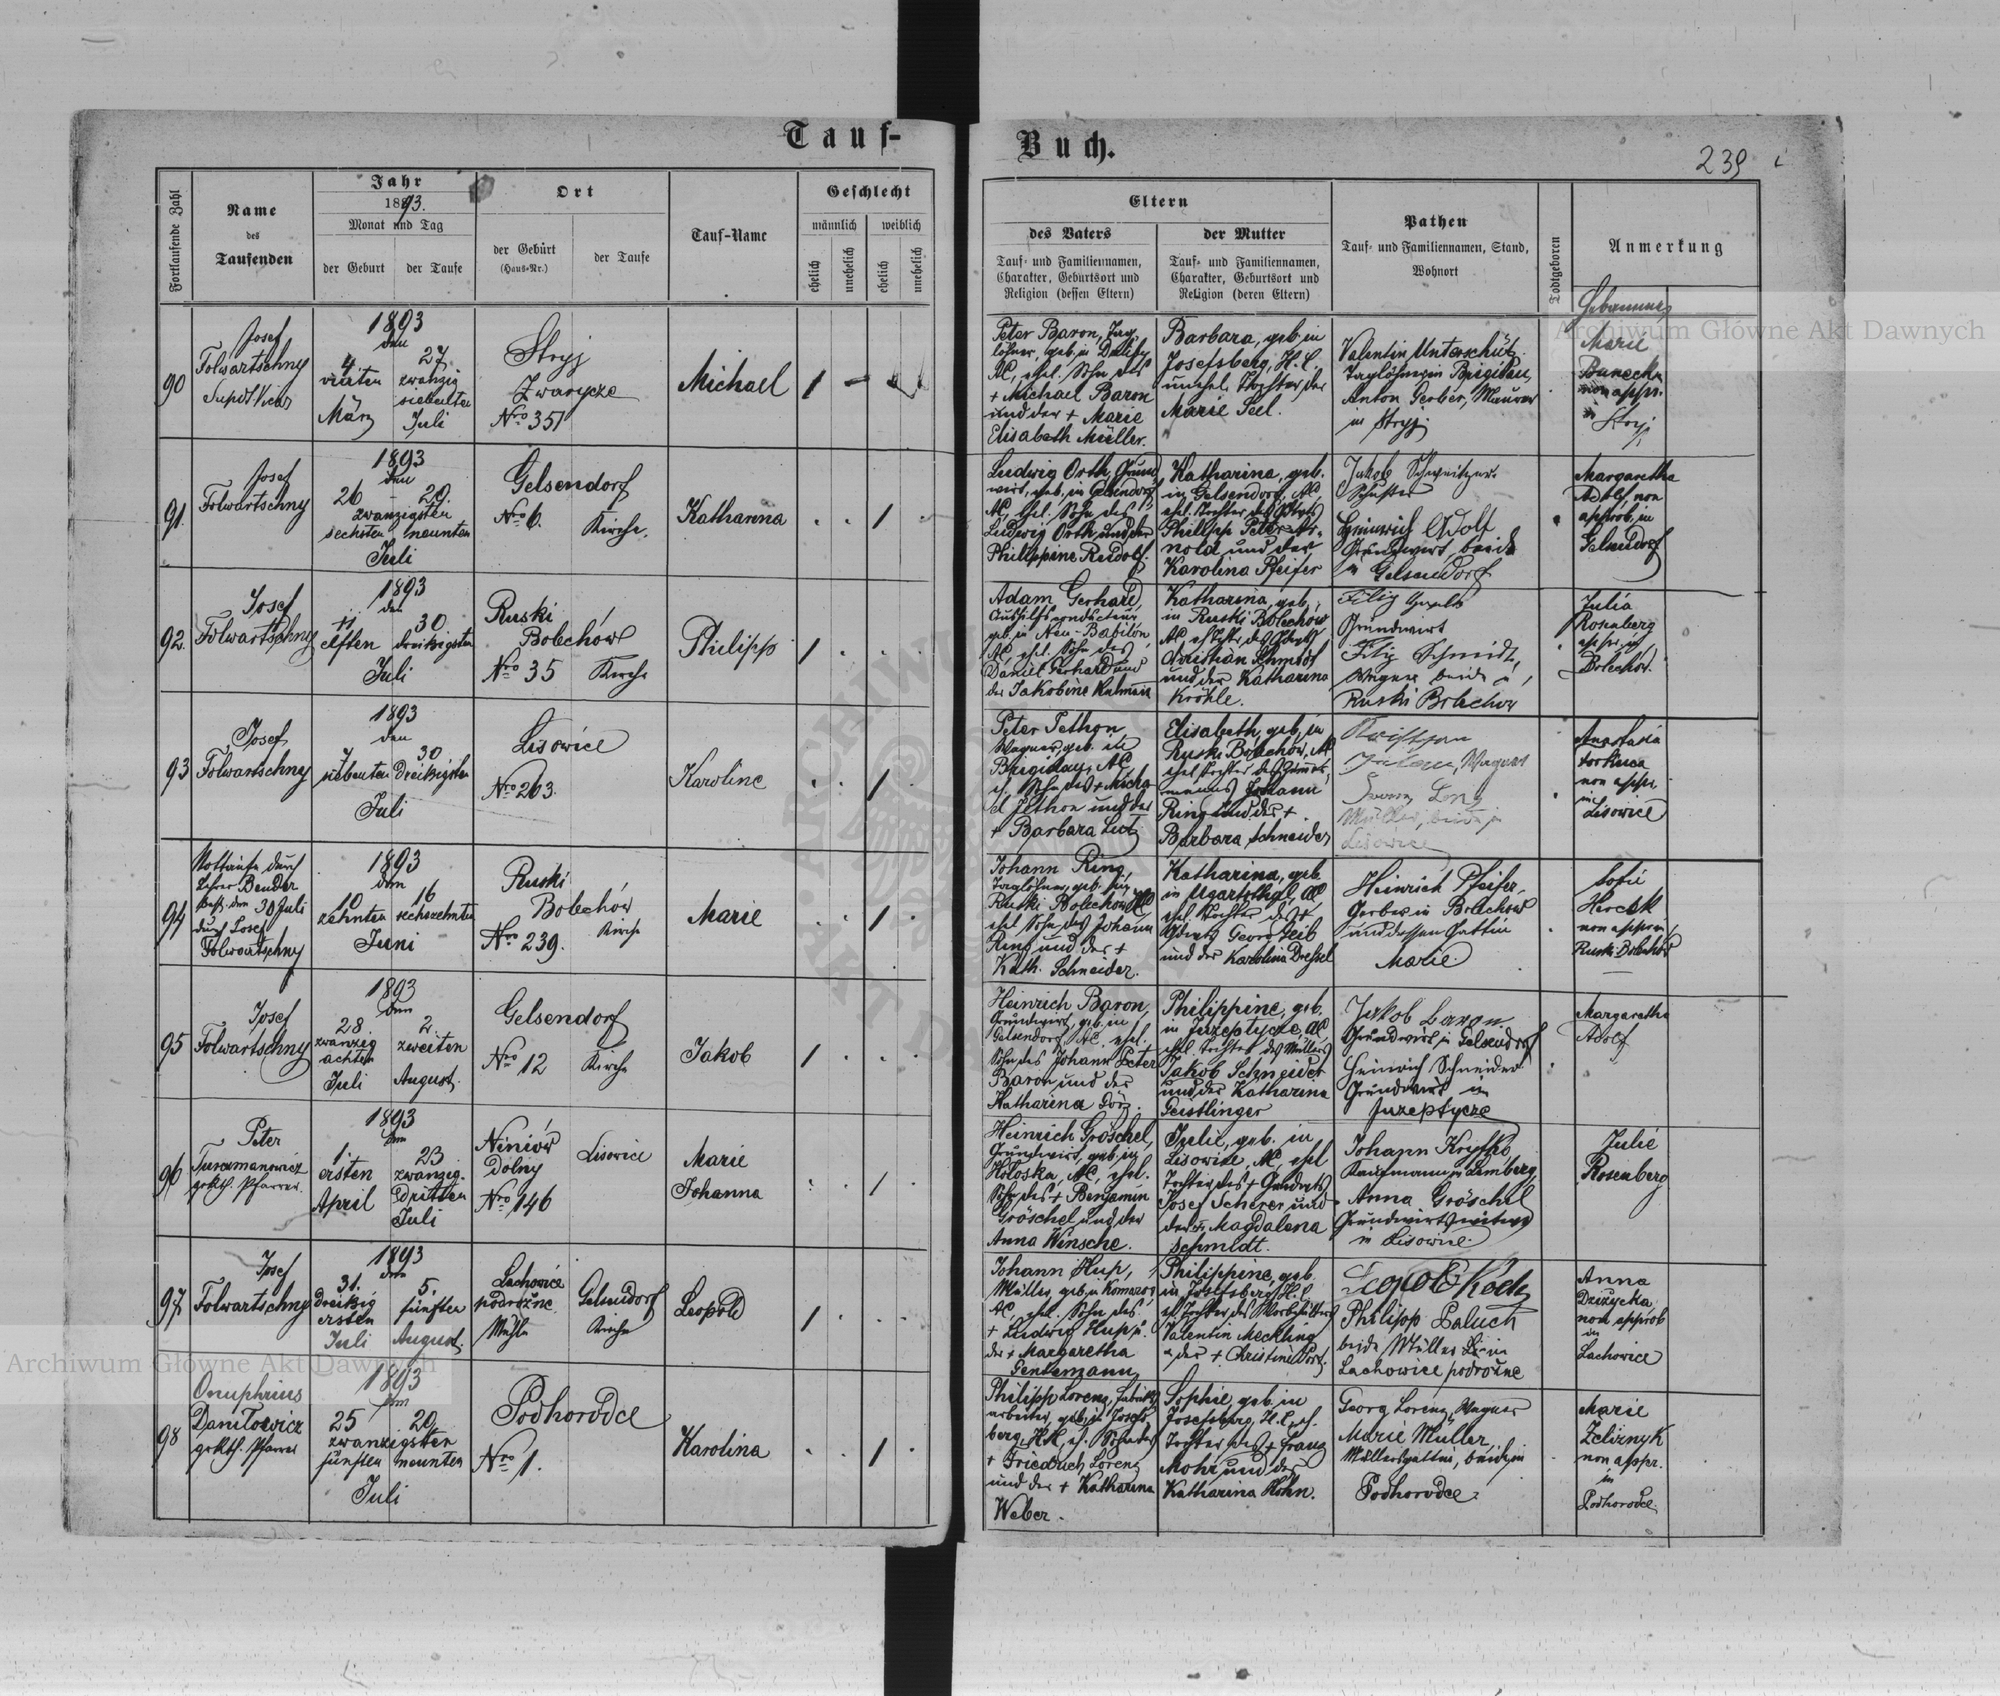 Tauf-
Buch.
239
Fortlaufende Zahl
Name
des
Taufenden
Jahr
1893.
Monat und Tag
der Geburt
der Taufe
Ort
der Geburt
(Haus=Nr.)
der Taufe
Tauf=Name
Geschlecht
männlich
weiblich
ehelich
unehelich
ehelich
unehelich
Eltern
des Vaters
Tauf= und Familiennamen,
Charakter, Geburtsort und
Religion (dessen Eltern)
der Mutter
Tauf= und Familiennamen,
Charakter, Geburtsort und
Religion (deren Eltern)
Pathen
Tauf= und Familiennamen, Stand,
Wohnort
Todtgeboren
Anmerkung
90
Josef
Folwartschny
1893
den
4 27
vierten zwanzig
siebenten
März Juli
Stryj
Zwarycze
Nro 351
Michael
Peter Baron, Tag
löhner, geb. in
AC, ehel. Sohn des
+ Michael Baron
und der + Marie
Elisabeth Müller.
Barbara, geb. in
Josefsberg, H.C.
unehel. Tochter der
Marie Seel.
Valentin Unterschütz
Taglöhner in Brigidau,
Anton Gerber, Maurer
in Stryj.
Marie
Banecka
non appr.
in
Stryj
91.
Josef
Folwartschny
1893
den
26 29.
zwanzigsten
sechsten neunten
Juli
Gelsendorf
Nro 6. Kirche.
Katharina
Ludwig Orth, Grund
wirt, geb. in Gelsendorf,
AC, ehel. Sohn des
Ludwig Orth und der
Philippine Rudolf.
Katharina, geb.
in Gelsendorf, AC,
ehel. Tochter des
Philipp Peter Ar-
nold und der
Karolina Pfeifer
Jakob Schweitzer
Schuster
Heinrich Adolf
Grundwirt, beide
in Gelsendorf
Margaretha
Adolf, non
approb. in
Gelsendorf
92.
Josef
Folwartschny
1893
den
11 30.
elften dreißigsten
Juli
Ruski
Bolechów
Nro 35 Kirche
Philipp
Adam Gerhard,
Aushilfsconducteur,
geb. in Neu-Babilon,
AC, ehel. Sohn des
Daniel Gerhard und
der Jakobine
Katharina, geb.
in Ruski Bolechów
Christian Schmidt
und der Katharina
Kröhle.
Filip
Grundwirt
Filip Schmidt,
Wagner beide in
Ruski Bolechow
Julia
Rosenberg
appr. in
Bolechow.
93
Josef
Folwartschny
1893
den
7 30
siebenten Dreißigsten
Juli
Lisowice
Nro 263.
Karoline
Peter Jethon,
Wagner, geb. in
Brigidau, AC,
e. Sohn des + Micha
el Jethon und der
+ Barbara Lutz
Elisabeth, geb. in
Ruski Bolechow, AC
ehel. Tochter des
Johann
Ring und der +
Barbara Schneider
Wagner
Lenz
Müller, beide in
Lisowice
Anastasia
non appr.
in
Lisowice
94
Nottaufe durch
Lehrer Bender
den 30 Juli
durch Josef
Folwartschny
1893
den
10 16
zehnten sechszehnten
Juni
Ruski
Bolechów
Nro 239. Kirche
Marie
Johann Ring,
Taglöhner, geb. in
Ruski Bolechow, AC,
ehel. Sohn des Johann
Ring und der +
Kath. Schneider.
Katharina, geb.
in Ugartsthal, AC,
ehel. Tochter des +
Georg Leib
und der Karolina Dressel
Heinrich Pfeifer,
Gerber in Bolechow
und dessen Gattin
Marie
Sofie
non appr. in
Ruski Bolechow
95
Josef
Folwartschny
1893
den
28 2.
zwanzig zweiten
achten
Juli August.
Gelsendorf
Nro 12 Kirche
Jakob
Heinrich Baron,
Grundwirt, geb. in
Gelsendorf AC. ehel.
Sohn des Johann Peter
Baron und der
Katharina
Philippine, geb.
in Juzeptycze, AC
ehel. Tochter des Müllers
Jakob Schneider
und der Katharina
Geistlinger
Jakob Baron
Grundwirt in Gelsendorf
Heinrich Schneider
Grundwirt in
Juzeptycze
Margaretha
Adolf
96
Peter
gr. kth. Pfarrer.
1893
den
1. 23
ersten zwanzig.
dritten
April Juli
Niniów
Dolny
Nro 146
Lisowice
Marie
Johanna
Heinrich Gröschel,
Grundwirt, geb. in
Hołoska, AC, ehel.
Sohn des + Benjamin
Gröschel und der
Anna Winsche.
Julie, geb. in
Lisowice, AC, ehel
Tochter des +
Josef Scherer und
der Magdalena
Schmidt.
Johann
Kaufmann in Lemberg,
Anna Gröschel
Grundwirtswitwe
in Lisowice.
Julie
Rosenberg
97
Josef
Folwartschny
1893
den
31. 5.
Dreißig fünften
ersten
Juli August.
Lachowice
podrożne
Mühle
Gelsendorf
Kirche
Leopold
Johann Hup,
Müller, geb. in Komarow
AC, ehel. Sohn des
+ Ludwig Hup u.
der + Margaretha
Philippine, geb.
in Josefsberg, H.C.
Valentin Meckling
u der + Christine
Leopold Koch
Philipp Paluch
beide Müller in
Lachowice podrożne
Anna
Dziżycka
non approb
in
Lachowice
98
Onuphrius
Daniłowicz
gr. kth. Pfarrer
1893
den
25 29.
zwanzigsten
fünften neunten
Juli
Podhorodce
Nro 1.
Karolina
Philipp Lorenz, Fabriks
arbeiter, geb. in Josefs
berg, H.C, e. Sohn des
+ Friedrich Lorenz
und der + Katharina
Weber.
Sophie, geb. in
Josefsberg, H.C, eh.
Tochter des + Franz
Mohr und der
Katharina Hohn.
Georg Lorenz, Wagner
Marie Müller,
Müllersgattin, beide in
Podhorodce
Marie
Żeliznyk
non appr.
in
Podhorodce
Archiwum Główne Akt Dawnych
Archiwum Główne Akt Dawnych